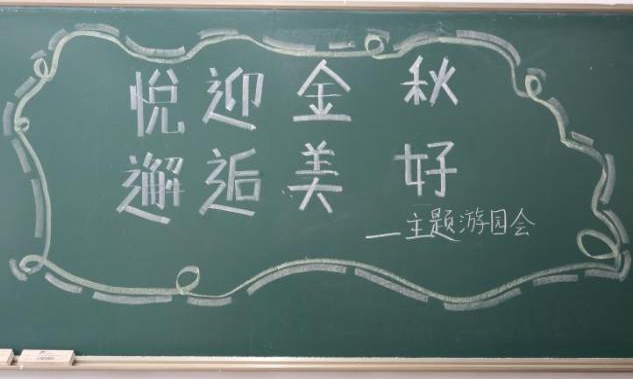 悦迎金秋
邂逅美好
—主题游园会